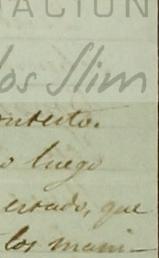 DACIÓN
los Slim
ontesto.
o luego
estado, que
los mani-